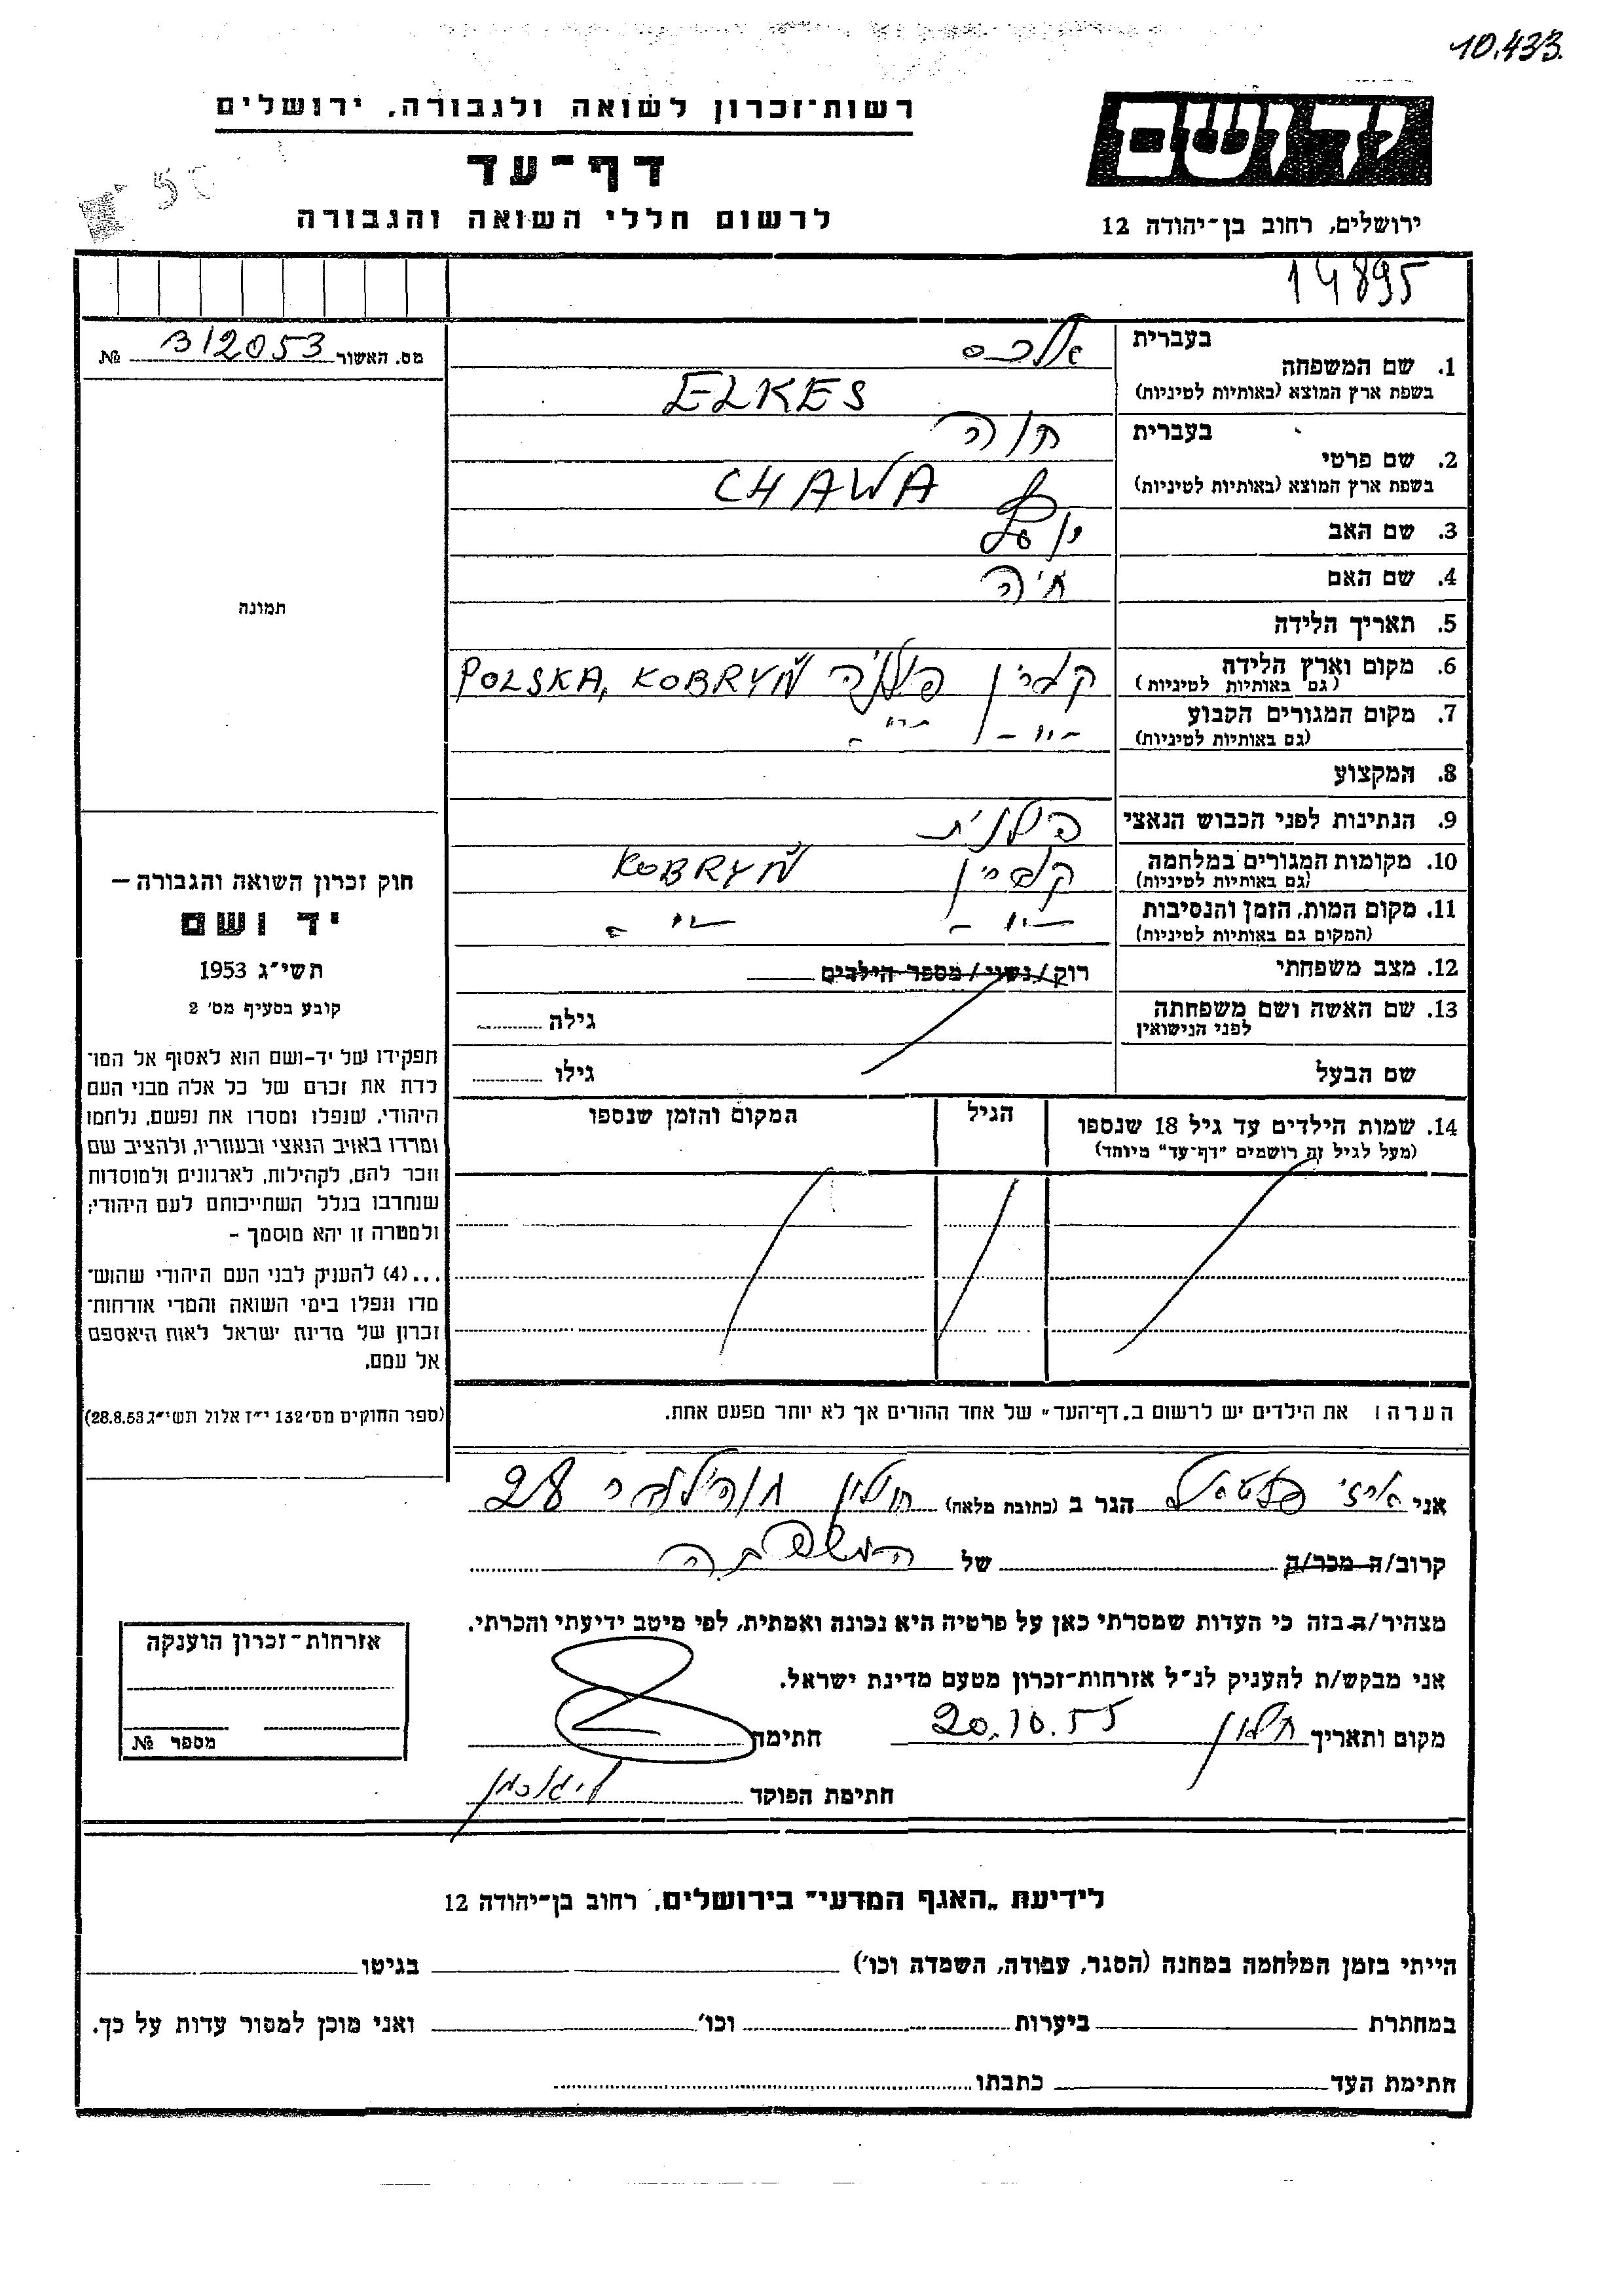 10.433.
רשות־זכרון לשואה ולגבורה, ירושלים
ידושם
דף־עד
לרשום חללי השואה והגבורה
ירושלים, רחוב בן־יהודה 12
14895
מס. האשור № 312053
בעברית אלכס
1. שם המשפחה
בשפת ארץ המוצא (באותיות לטיניות) ELKES
בעברית חוה
2. שם פרטי
בשפת ארץ המוצא (באותיות לטיניות) CHAWA
3. שם האב יוסף
4. שם האם חיה
5. תאריך הלידה
6. מקום וארץ הלידה קוברין פולניה POLSKA, KOBRYŃ
(גם באותיות לטיניות)
7. מקום המגורים הקבוע - " - - " -
(גם באותיות לטיניות)
8. המקצוע
9. הנתינות לפני הכבוש הנאצי פולנית
10. מקומות המגורים במלחמה קוברין KOBRYŃ
(גם באותיות לטיניות)
11. מקום המות, הזמן והנסיבות - " - - " -
(המקום גם באותיות לטיניות)
12. מצב משפחתי רוק / נשוי / מספר הילדים
13. שם האשה ושם משפחתה גילה
לפני הנישואין
שם הבעל גילו
14. שמות הילדים עד גיל 18 שנספו הגיל המקום והזמן שנספו
(מעל לגיל זה רושמים "דף־עד" מיוחד)
הערה: את הילדים יש לרשום ב„דף־העד" של אחד ההורים אך לא יותר מפעם אחת.
תמונה
חוק זכרון השואה והגבורה —
יד ושם
תשי"ג 1953
קובע בסעיף מס' 2
תפקידו של יד-ושם הוא לאסוף אל המו־
לדת את זכרם של כל אלה מבני העם
היהודי, שנפלו ומסרו את נפשם, נלחמו
ומרדו באויב הנאצי ובעוזריו, ולהציב שם
וזכר להם, לקהילות, לארגונים ולמוסדות
שנחרבו בגלל השתייכותם לעם היהודי;
ולמטרה זו יהא מוסמך –
...(4) להעניק לבני העם היהודי שהוש־
מדו ונפלו בימי השואה והמרי אזרחות־
זכרון של מדינת ישראל לאות היאספם
אל עמם.
(ספר החוקים מס' 132 י"ז אלול תשי"ג 28.8.53)
אני הגר ב (כתובת מלאה) חולון 28
קרוב/ה מכר/ה של המשפחה
מצהיר/ה בזה כי העדות שמסרתי כאן על פרטיה היא נכונה ואמתית, לפי מיטב ידיעתי והכרתי.
אני מבקש/ת להעניק לנ"ל אזרחות־זכרון מטעם מדינת ישראל.
מקום ותאריך חולון 20.10.55 חתימה
חתימת הפוקד
אזרחות־זכרון הוענקה
מספר №
לידיעת „האגף המדעי" בירושלים, רחוב בן־יהודה 12
הייתי בזמן המלחמה במחנה (הסגר, עבודה, השמדה וכו') בגיטו
במחתרת ביערות וכו' ואני מוכן למסור עדות על כך.
חתימת העד כתבתו